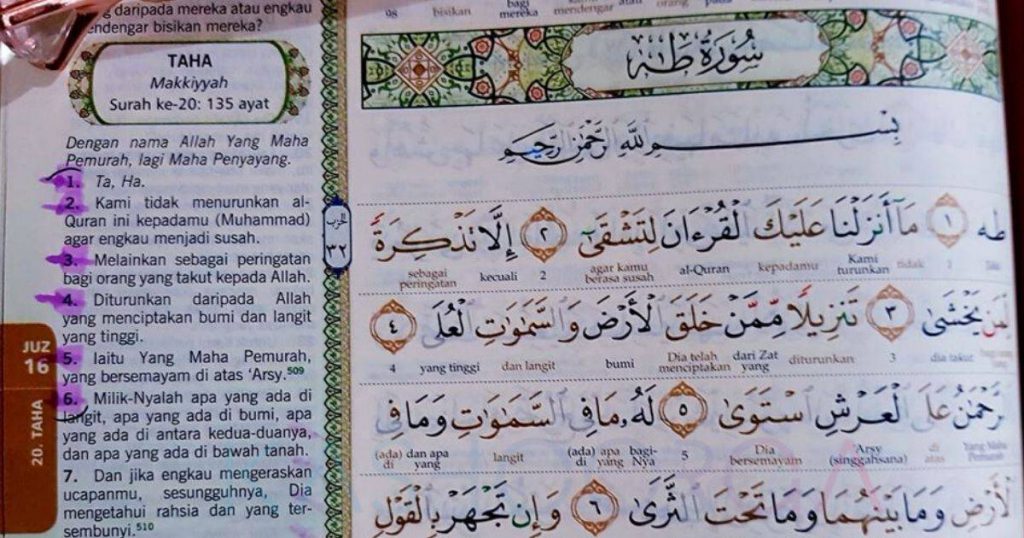 daripada mereka atau engkau
mendengar bisikan mereka?
TAHA
Makkiyyah
Surah ke-20: 135 ayat
Dengan nama Allah Yang Maha
Pemurah, lagi Maha Penyayang.
1. Ta, Ha.
2. Kami tidak menurunkan al-
Quran ini kepadamu (Muhammad)
agar engkau menjadi susah.
3. Melainkan sebagai peringatan
bagi orang yang takut kepada Allah.
4. Diturunkan daripada Allah
yang menciptakan bumi dan langit
yang tinggi.
5. Iaitu Yang Maha Pemurah,
yang bersemayam di atas ‘Arsy.509
6. Milik-Nyalah apa yang ada di
langit, apa yang ada di bumi, apa
yang ada di antara kedua-duanya,
dan apa yang ada di bawah tanah.
7. Dan jika engkau mengeraskan
ucapanmu, sesungguhnya, Dia
mengetahui rahsia dan yang ter-
sembunyi.510
JUZ
16
20. TAHA
الحزب
٣٢
98 bisikan bagi mereka mendengar atau orang
سُورَةُ طٰهٰ
بِسْمِ اللَّهِ الرَّحْمٰنِ الرَّحِيمِ
طه ١ مَآ أَنزَلْنَا عَلَيْكَ الْقُرْءَانَ لِتَشْقَىٰٓ ٢ إِلَّا تَذْكِرَةً
sebagai peringatan kecuali 2 agar kamu berasa susah al-Quran kepadamu Kami turunkan tidak 1
لِّمَن يَخْشَىٰ ٣ تَنزِيلًا مِّمَّنْ خَلَقَ الْأَرْضَ وَالسَّمَٰوَٰتِ الْعُلَى ٤
4 yang tinggi dan langit bumi Dia telah menciptakan dari Zat yang diturunkan 3 dia takut
رَّحْمَٰنُ عَلَى الْعَرْشِ اسْتَوَىٰ ٥ لَهُۥ مَا فِي السَّمَٰوَٰتِ وَمَا فِي
(ada) di dan apa yang langit (ada) di apa yang bagi-Nya 5 Dia bersemayam Arsy (singgahsana) di atas Yang Maha Pemurah
لْأَرْضِ وَمَا بَيْنَهُمَا وَمَا تَحْتَ الثَّرَىٰ ٦ وَإِن تَجْهَرْ بِالْقَوْلِ